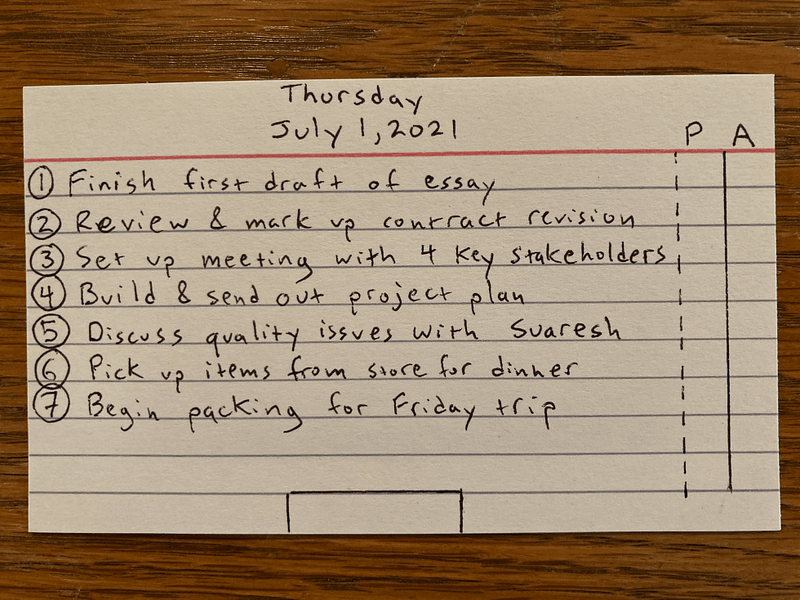 Thursday
July 1, 2021
P A
1 Finish first draft of essay
2 Review & mark up contract revision
3 Set up meeting with 4 key stakeholders
4 Build & send out project plan
5 Discuss quality issues with Suaresh
6 Pick up items from store for dinner
7 Begin packing for Friday trip